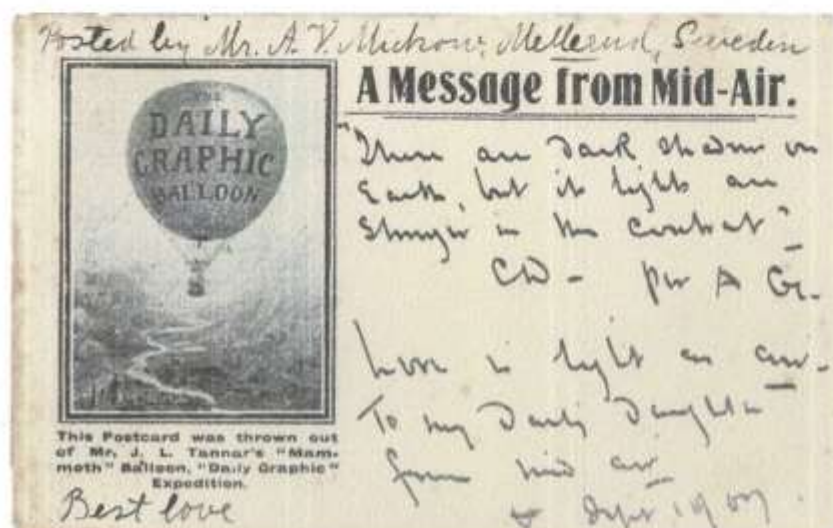 Posted by Mr. A. V. Mellerud, Sweden
A Message from Mid-Air.
THE
DAILY
GRAPHIC
BALLOON
"There are dark shadows on
Earth, but its lights are
stronger in the contrast"
CD - per A G.
Love is light as air.
To my Darling Daughter
from mid air
Sept 1907
This Postcard was thrown out
of Mr. J. L. Tannar's "Mam-
moth" Balloon, "Daily Graphic"
Expedition.
Best love